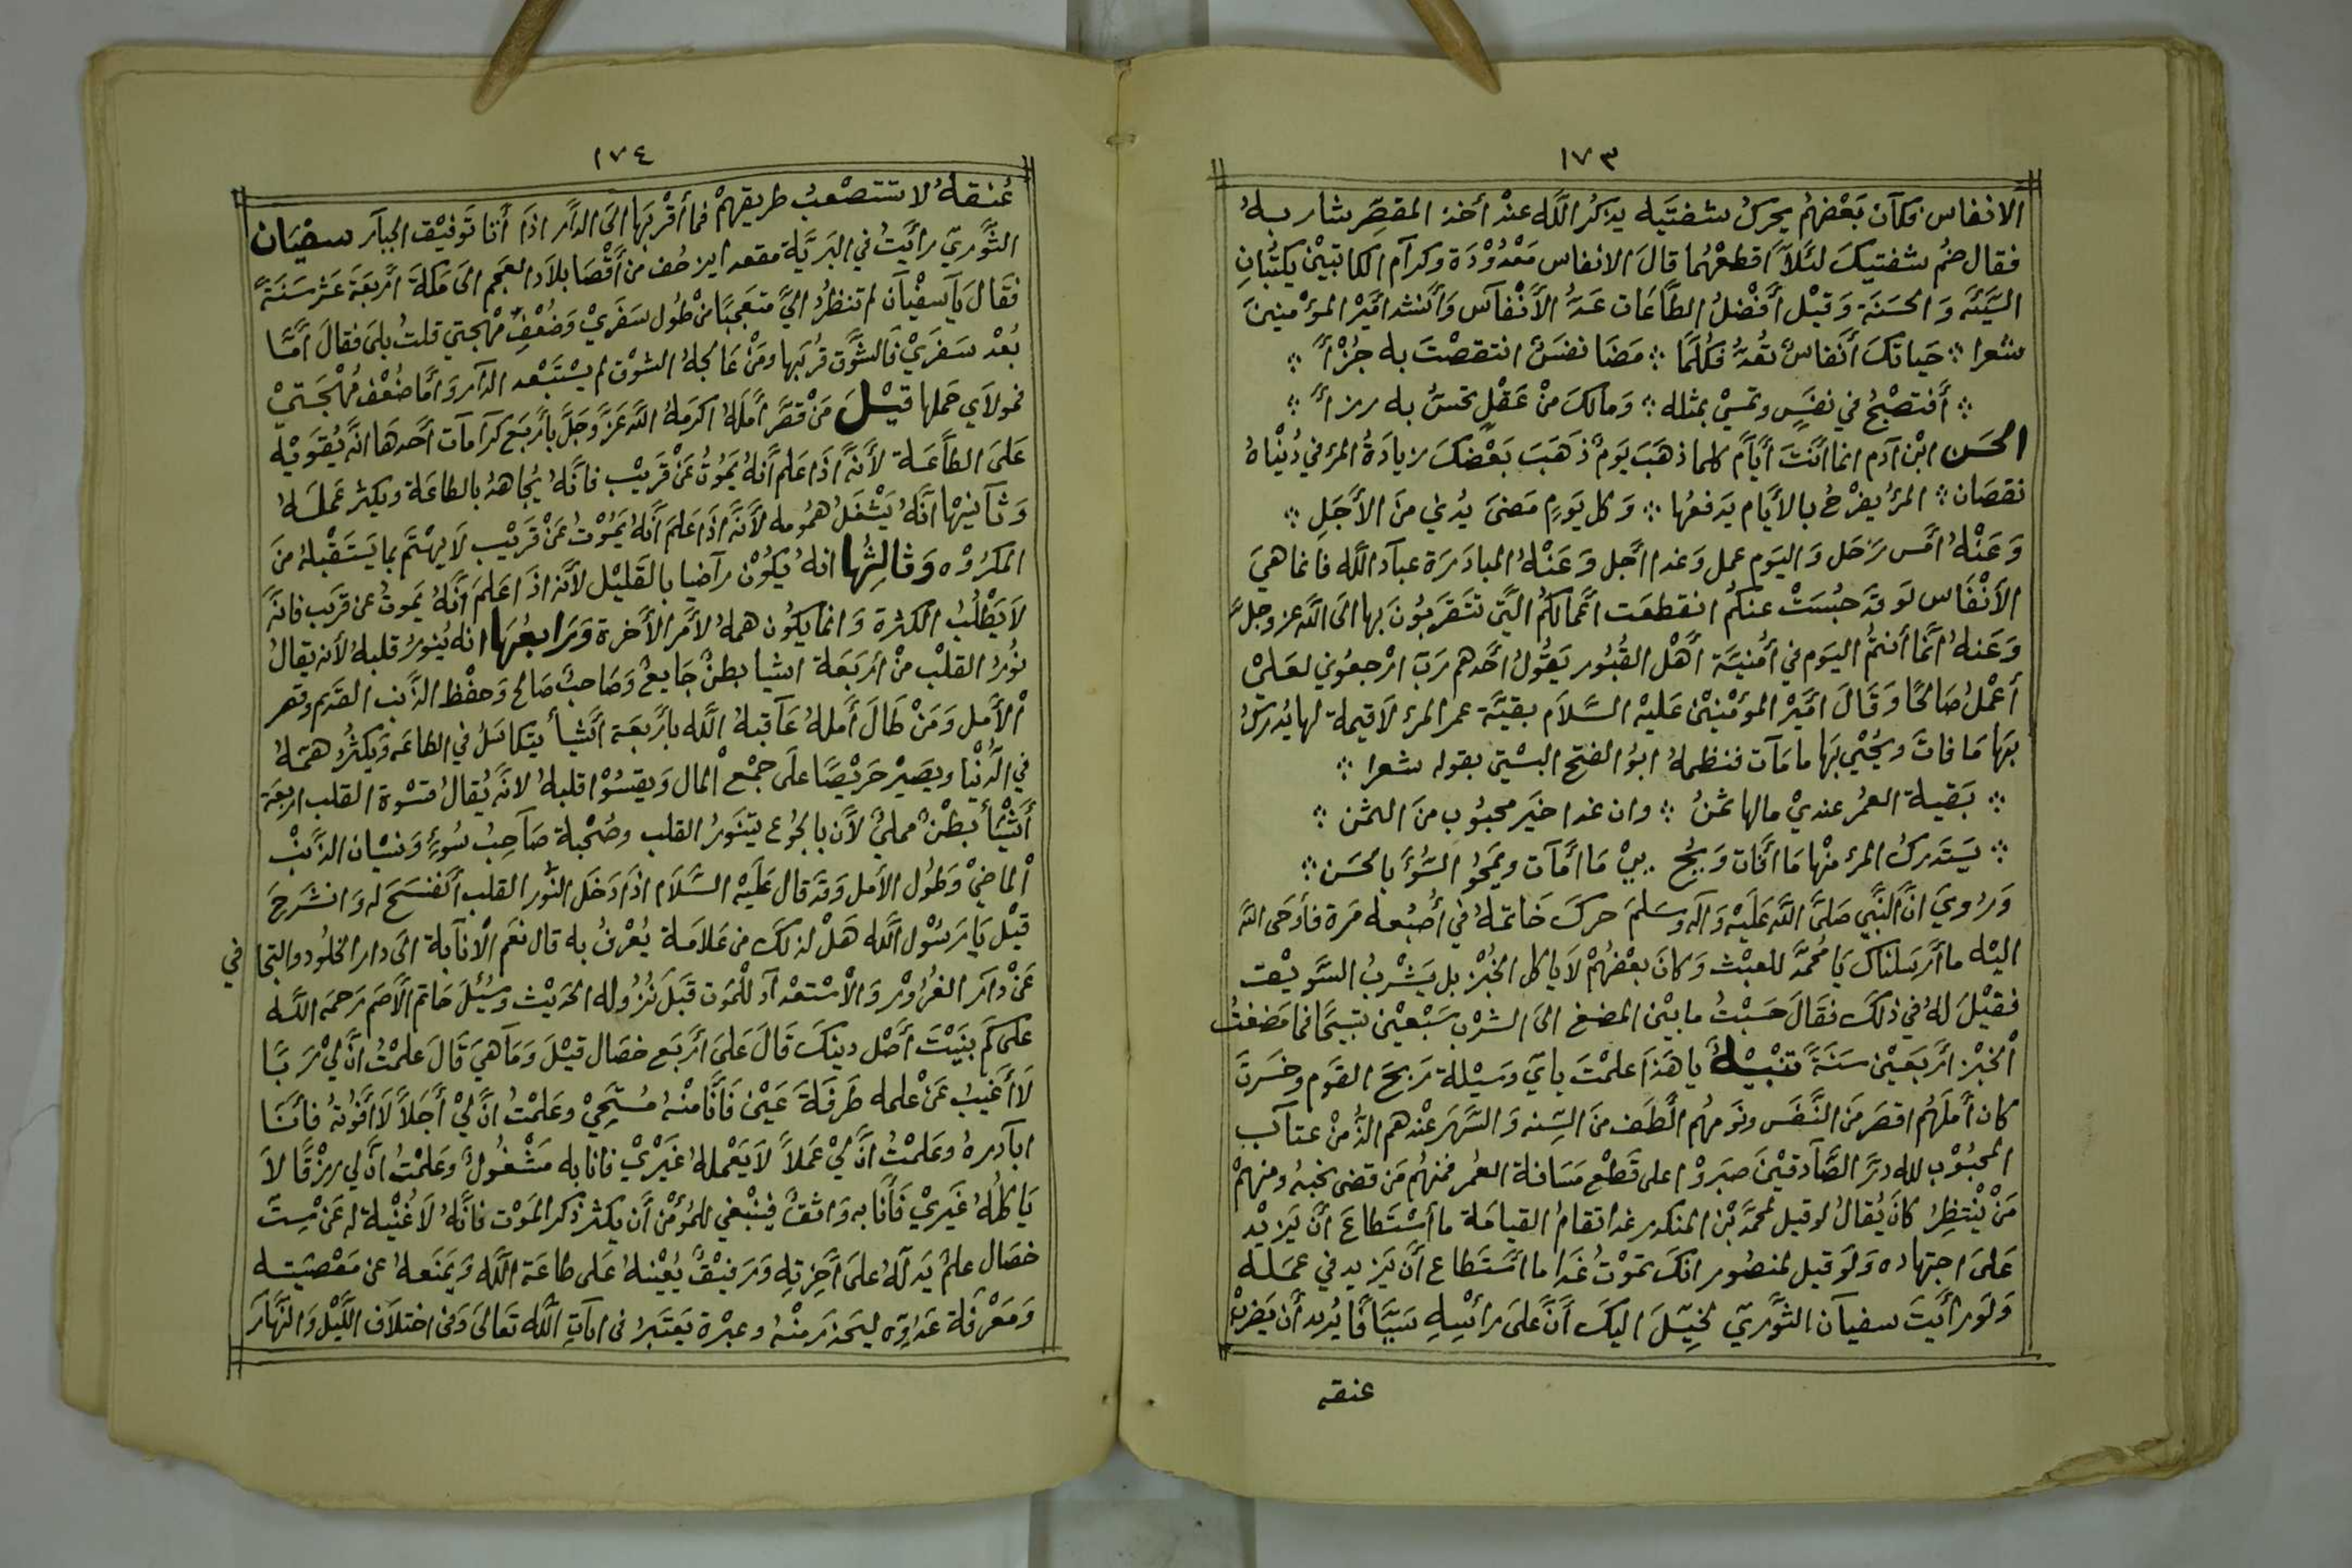 ١٧٣
الانفاس وكآن بَعْضهُم يحركُ شفتَيه يذكُر اللَّه عنْد أخذ المقصِّر شاربهُ
فقال ضُم شفتيكَ لئَلآَّ اقطعْهُما قالَ الانفاس مَعْدُوْدَة وكرآم الكاتبَيْن يكتُبانِ
السَّيِّئَه وَالحسَنَة وَقيْل أفْضَلُ الطَّاعَات عَدُّ الأَنْفآس وَأنشد امَيْر المؤمنينَ
شعرا ؞ حَياتكَ أنَفاسٌ تُعَدُّ فكُلَّمَا ؞ مَضَا نفسٌ انتقصْتَ به جُزْأً ؞
؞ أفتصْبحُ في نفسٍ وتمسيْ بمثله ؞ وَمالكَ منْ عَقْلٍ تحسُّ به رزأً ؞
الحَسَن ابْن آدم انما انْتَ أيَّام كلما ذهَبَ يَومٌ ذَهَبَ بَعْضكَ زيادَةُ المرْ في دُنْيَاهُ
نقصَان ؞ المرُ يفْرَحُ بالأيَّام يَدفعُها ؞ وَكل يَومٍ مَضىَ يُدني منَ الأَجَلِ ؞
وَعَنْهُ امَس رَحَل وَاليَوم عمل وَغدا اجَل وَعَنْهُ المبادَرَة عبآد اللَّه فانما هيَ
الأنْفَاس لَو قَد حبُسَتْ عنكمُ انقطعَت اعَمالكُمُ التَّيْ تتَقَربُونَ بها الَى اللَّه عز وجلَّ
وَعَنهُ انَّما أنتُمُ اليَوم في أمُنيَّة أهْل القُبُور يَقُولُ أحَدهم رَبّ ارْجعُوني لعَلّيْ
أعْملُ صَالحًا وَقَالَ امَيْر المؤمْنينْ عَليْه السَّلاَم بقيَّة عمر المرْ لاَقيمة لها يُدركُ
بهَا مَا فاتَ ويحُيْي بهَا ما مَآت فنظمهُ ابوُ الفتح البسْتيّ بقوله شعرا ؞
؞ بَقية العمُر عنديْ مالها ثمنُ ؞ وان غدا خَيَر محبُوبٍ منَ الثمَن ؞
؞ يَستَدركُ المرْ منْها مَا أفَات وَيحُيْيْ مَا أمَآت ويمَحوُ السُّوْءَ بالحَسَن ؞
وَرُويَ انَّ النَّبيَّ صَلىَّ اللَّه عَلَيْه وَآله وسَلمَ حركَ خَاتمهُ في أصُبُعه مَرة فأوحَى اللهَ
اليْه ما أرَسلناكَ يَا مُحمَّد للعبْث وَكانَ بعْضُهُمْ لاَ ياكل الخُبْزَ بل يَشْربُ السَّويْق
فقيْلَ لهُ في ذلكَ فقَالَ حَسَبْتُ ما بيْنَ المضغ الىَ الشرْب سَبْعيْن تسبيَحَا فما مَضغتُ
الْخبْز أرَبعَيْن سَنَةً تنْبيْهٌ يا هَذَا علمْتَ بايّ وَسيْلة رَبحَ القَوم وخَسَرتَ
كان أمَلَهُم اقصَر مَن النَّفَس ونَومهُم الَطَف منَ السِّنه وَالسَّهَر عنْدهم الذُّ منْ عتآب
المحبُوْب لله دَرّ الصَّآدقيْن صَبَروْا على قَطْع مَسَافة العُمُر فمنهُم مَن قضَى نحبهُ ومنهمْ
مَنْ يْنتظِرُ كانَ يُقالُ لو قيل لمحمَّد بْن المنكدر غدا تقامُ القيامَة ما اسْتَطاعَ أنَّ يَزيْد
عَلىَ اجتهاده وَلَو قيل لمنصُور انكَ تموْتُ غَدا ما اسَتَطاع أنَّ يَزيد في عمَله
وَلوَ رأيَتَ سفيآن الثَّوريّ لخيِّلَ اليكَ أنَّ عَلىَ رَأسْهِ سَيَّافًا يُريد أن يَضربْ
عنقه
١٧٤
عُنقهُ لا تستصْعبُ طريقهُمْ فما أقْربَها الىَ الدآَّر اذَا أتا تَوفيْق الجبآر سفيَان
الثَّوريّ رأيَتُ في البَريَّة مقعدا يزحُف من أقْصَا بلاَد العَجم الىَ مَكةَ أرَبَعَةَ عَشر سَنَةً
فَقَالَ يَآ سفْيآن لم تنظرُ اليَّ متَعَجبًا منْ طُول سَفَريْ وَضُعْفِ مُهجتي قلتُ بلَى فقالَ أمَّا
بُعْد سَفَريْ فَالشَّوق قرُبَها ومَنْ عَالجهُ الشوْق لم يسْتَبْعد الدآر وَأمَا ضُعْف مُهْجَتيْ
فمولاَي حَملها قيْلَ مَنْ قصَّر أمَلهُ اكرَمهُ اللَّه عَزَّ وَجَلَّ بأرَبَع كرآمآت أحَدهَا انَّه يُقَويْه
عَلىَ الطاَّعَة لأَنَّه اذَا عَلم أنهُ يَمُوتُ عَنْ قَريْب فانَّهُ يُجاهدُ بالطاعَة ويكثر عَملهُ
وَثآنيهْا انَّهُ يَشْغَلُ هُمُومه لأنَّه اذَا عَلمَ أنَّهُ يَمُوْت عَنْ قَريْبٍ لاَ يهْتَم بما يَسَتَقْبلهُ منَ
المكَرُوْه وَثالِثُها انهُ يكُوْن رآضيا بالقَليْل لأنَّه اذَا عَلمَ أنَّهُ يَموتُ عن قرَيب فانهَّ
لاَ يَطْلبُ الكثرة وَانما يكوُن همهُ لأمَر الأخَرة وَرَابعُهَا انه يُنورُ قلبهُ لأنه يقالُ
نُورُ القلبْ منْ أرَبَعَة اشيا بطنٌ جَايعٌ وَصَاحبٌ صَالح وَحفْظ الذَّنب القدَيم وقصر
الأمَل وَمَنْ طَالَ أمَلهُ عَآقبهُ اللَّه بأرَبعَة أشَيأ يتكاسَلُ في الطاعَه وَيكثُرُ همَّهُ
في الدُّنْيا ويصَيْر حَريْصًا علَى جمْع الْمال وَيقسُوْا قلبهُ لانَّه يُقالُ قسْوة القلب اربَعَة
أشَيْأ بطْنٌ مملىٌ لأَن بالجُوع يتنَورُ القلب وصُحْبة صَآحِبُ سُوءٍ وَنسْيان الذَّنْب
الْماضيْ وَطُول الأمَل وَقدَ قال عَلَيْه السَّلاَم اذَا دَخَل النُّور القلب أنَفسَحَ له وَانشَرحَ
قيْل يَا رَسُوْل اللَّه هَلْ لذلكَ من عَلاَمَة يُعْرفُ به قال نعَم الْاَنآبة الَى دار الخلُود والتجا في
عَنْ دآر الغرُوْر وَالاْسْتعْدآد للْموت قبَل نزُوله الحدَيْث وسَئِلَ حَاتم الأصَم رَحمَه اللَّه
علىَ كَم بنيَتَ أصَل دينكَ قَالَ عَلىَ أرَبَع خصَال قيْلَ وَمَا هيَ قَالَ عَلمْتُ انَّ ليْ رَبًّا
لاَ أغَيبُ عَنْ علمه طَرفَةَ عَيْن فَأنَّا منْهُ مُسْتَحيْ وعَلمْتُ انَّ ليْ أجَلاً لاَ افَوُتهُ فأنَا
ابآدرهُ وعَلمْتُ انَّ ليْ عَملاً لاَ يَعْملهُ غيَريْ فانا به مَشْغُولٌ وعَلمْتُ انَّ لي رزْقًا لاَ
يَاكلُهُ غيَريْ فَأنَا به وَاثقٌ فينْبَغي للمُؤمْن أن يكثر ذكر الموَت فانَّهُ لاَ غُنْية له عَنْ سِتّ
خصَال علمٌ يَدلهُ علَى آخرَته وَرَفيْقٌ يُعْينهُ عَلىَ طاعَة اللَّه وَيمَنَعهُ عن مَعْصيَته
وَمَعْرفَة عَدوّه ليحَذرَ منْهُ وعبرْة يَعتَبرُ في آيآت اللَّه تَعالىَ وَفي اختلاَف اللَّيْل وَالنَّهاَر